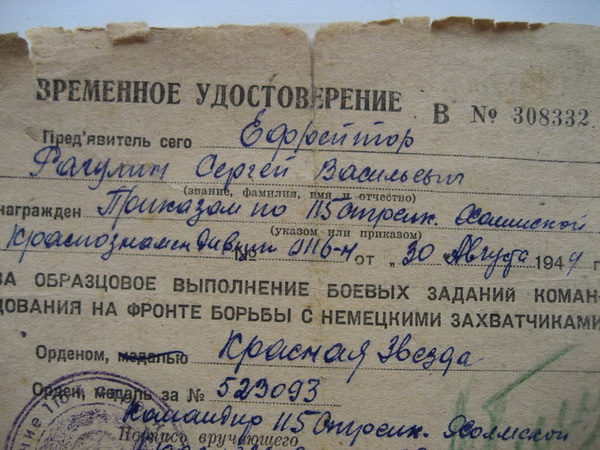 ВРЕМЕННОЕ УДОСТОВЕРЕНИЕ В № 308332
Пред'явитель сего Ефрейтор
Рагулин Сергей Васильевич
(звание, фамилия, имя и отчество)
награжден Приказом по 115 стрелк. Холмской
(указом или приказом)
Краснознамен дивизии № 0116-н от „ 30 Августа 1944 г
ЗА ОБРАЗЦОВОЕ ВЫПОЛНЕНИЕ БОЕВЫХ ЗАДАНИЙ КОМАН-
ДОВАНИЯ НА ФРОНТЕ БОРЬБЫ С НЕМЕЦКИМИ ЗАХВАТЧИКАМИ
Орденом, медалью Красная Звезда
Орден, медаль за № 523093
Командир 115 стрелк. Холмской
Подпись вручающего